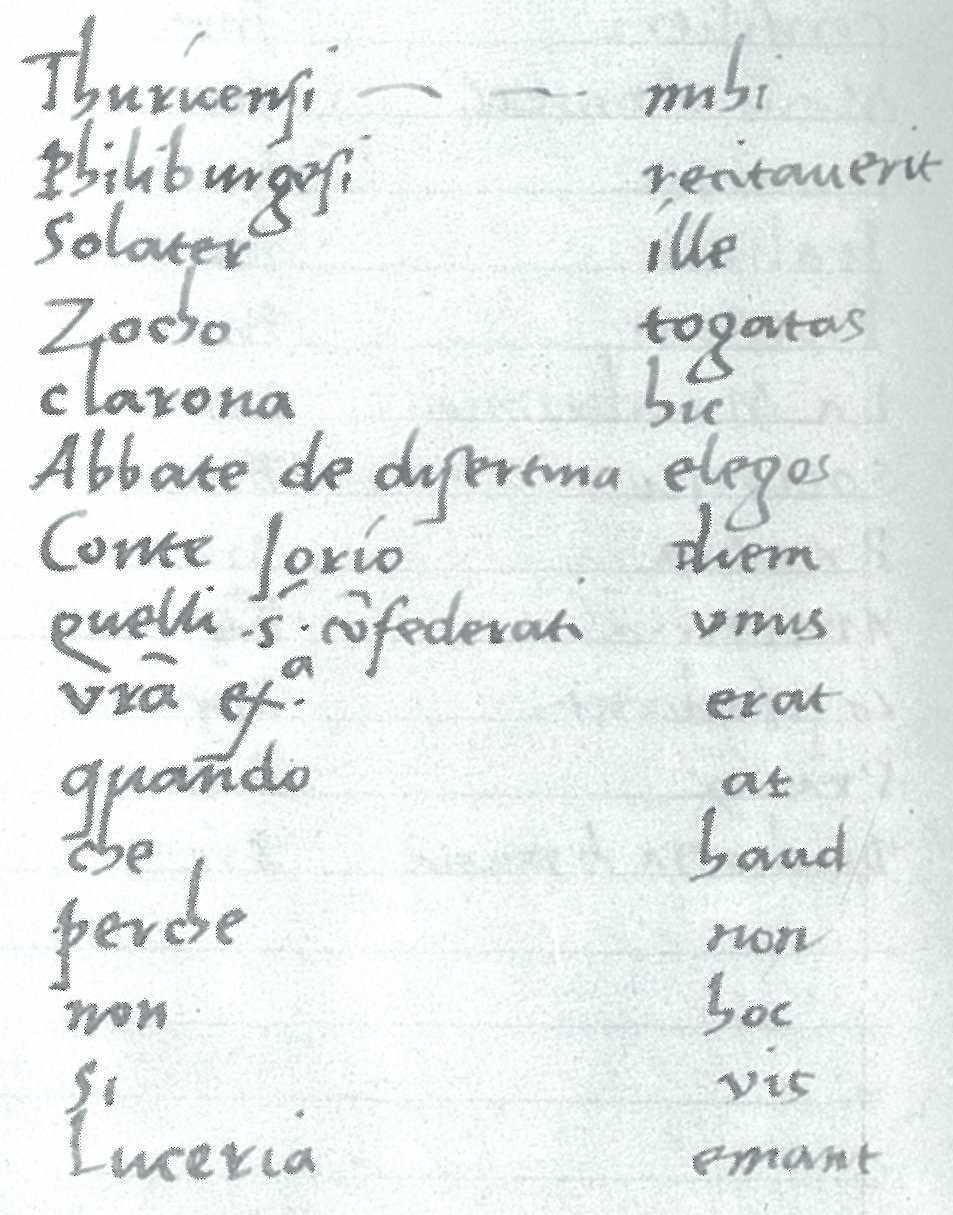 Thuricensi — — mihi
Philiburgēsi recitauerit
Solater ille
Zocho togatas
clarona hic
Abbate de disertina elegos
Conte Jorio diem
quelli .s̄. cōfederati vnus
vrā ex.ᵃ erat
quando at
che haud
perche non
non hoc
si vis
Luceria emant